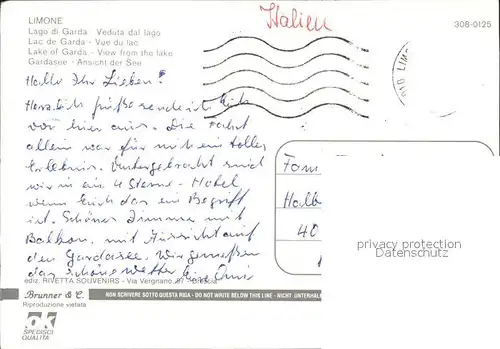 LIMONE
Lago di Garda Veduta dal lago
Lac de Garda - Vue du lac
Lake of Garda - View from the lake
Gardasee - Ansicht der See
Italien
308-0125
Hallo Ihr Lieben!
Herzlich Grüße sendet Euch
von hier aus. Die Fahrt
allein war für mich ein tolles
Erlebnis. Untergebracht sind
wir in ein 4 Sterne-Hotel
wenn Euch das ein Begriff
ist. Schönes Zimmer mit
Balkon, mit Aussicht auf
den Gardasee. Wir genießen
das schöne Wetter Eure Omi
Fam
Halb
40
privacy protection
Datenschutz
ediz. RIVETTA SOUVENIRS - Via Vergnano 87 - Brescia
Brunner & C.
Riproduzione vietata
NON SCRIVERE SOTTO QUESTA RIGA - DO NOT WRITE BELOW THIS LINE - NICHT UNTERHAL
ok
SPEDISCI
QUALITÀ